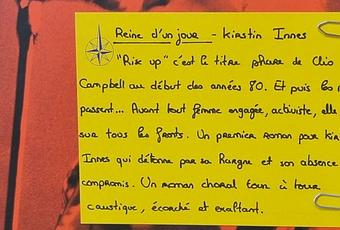 Reine d'un jour - Kirstin Innes
"Rise up" c'est le titre phare de Clio
Campbell au début des années 80. Et puis les
passent... Avant tout femme engagée, activiste, elle
sur tous les fronts. Un premier roman pour Kir
Innes qui détonne par sa hargne et son absence
compromis. Un roman choral tour à tour
caustique, écorché et exaltant.